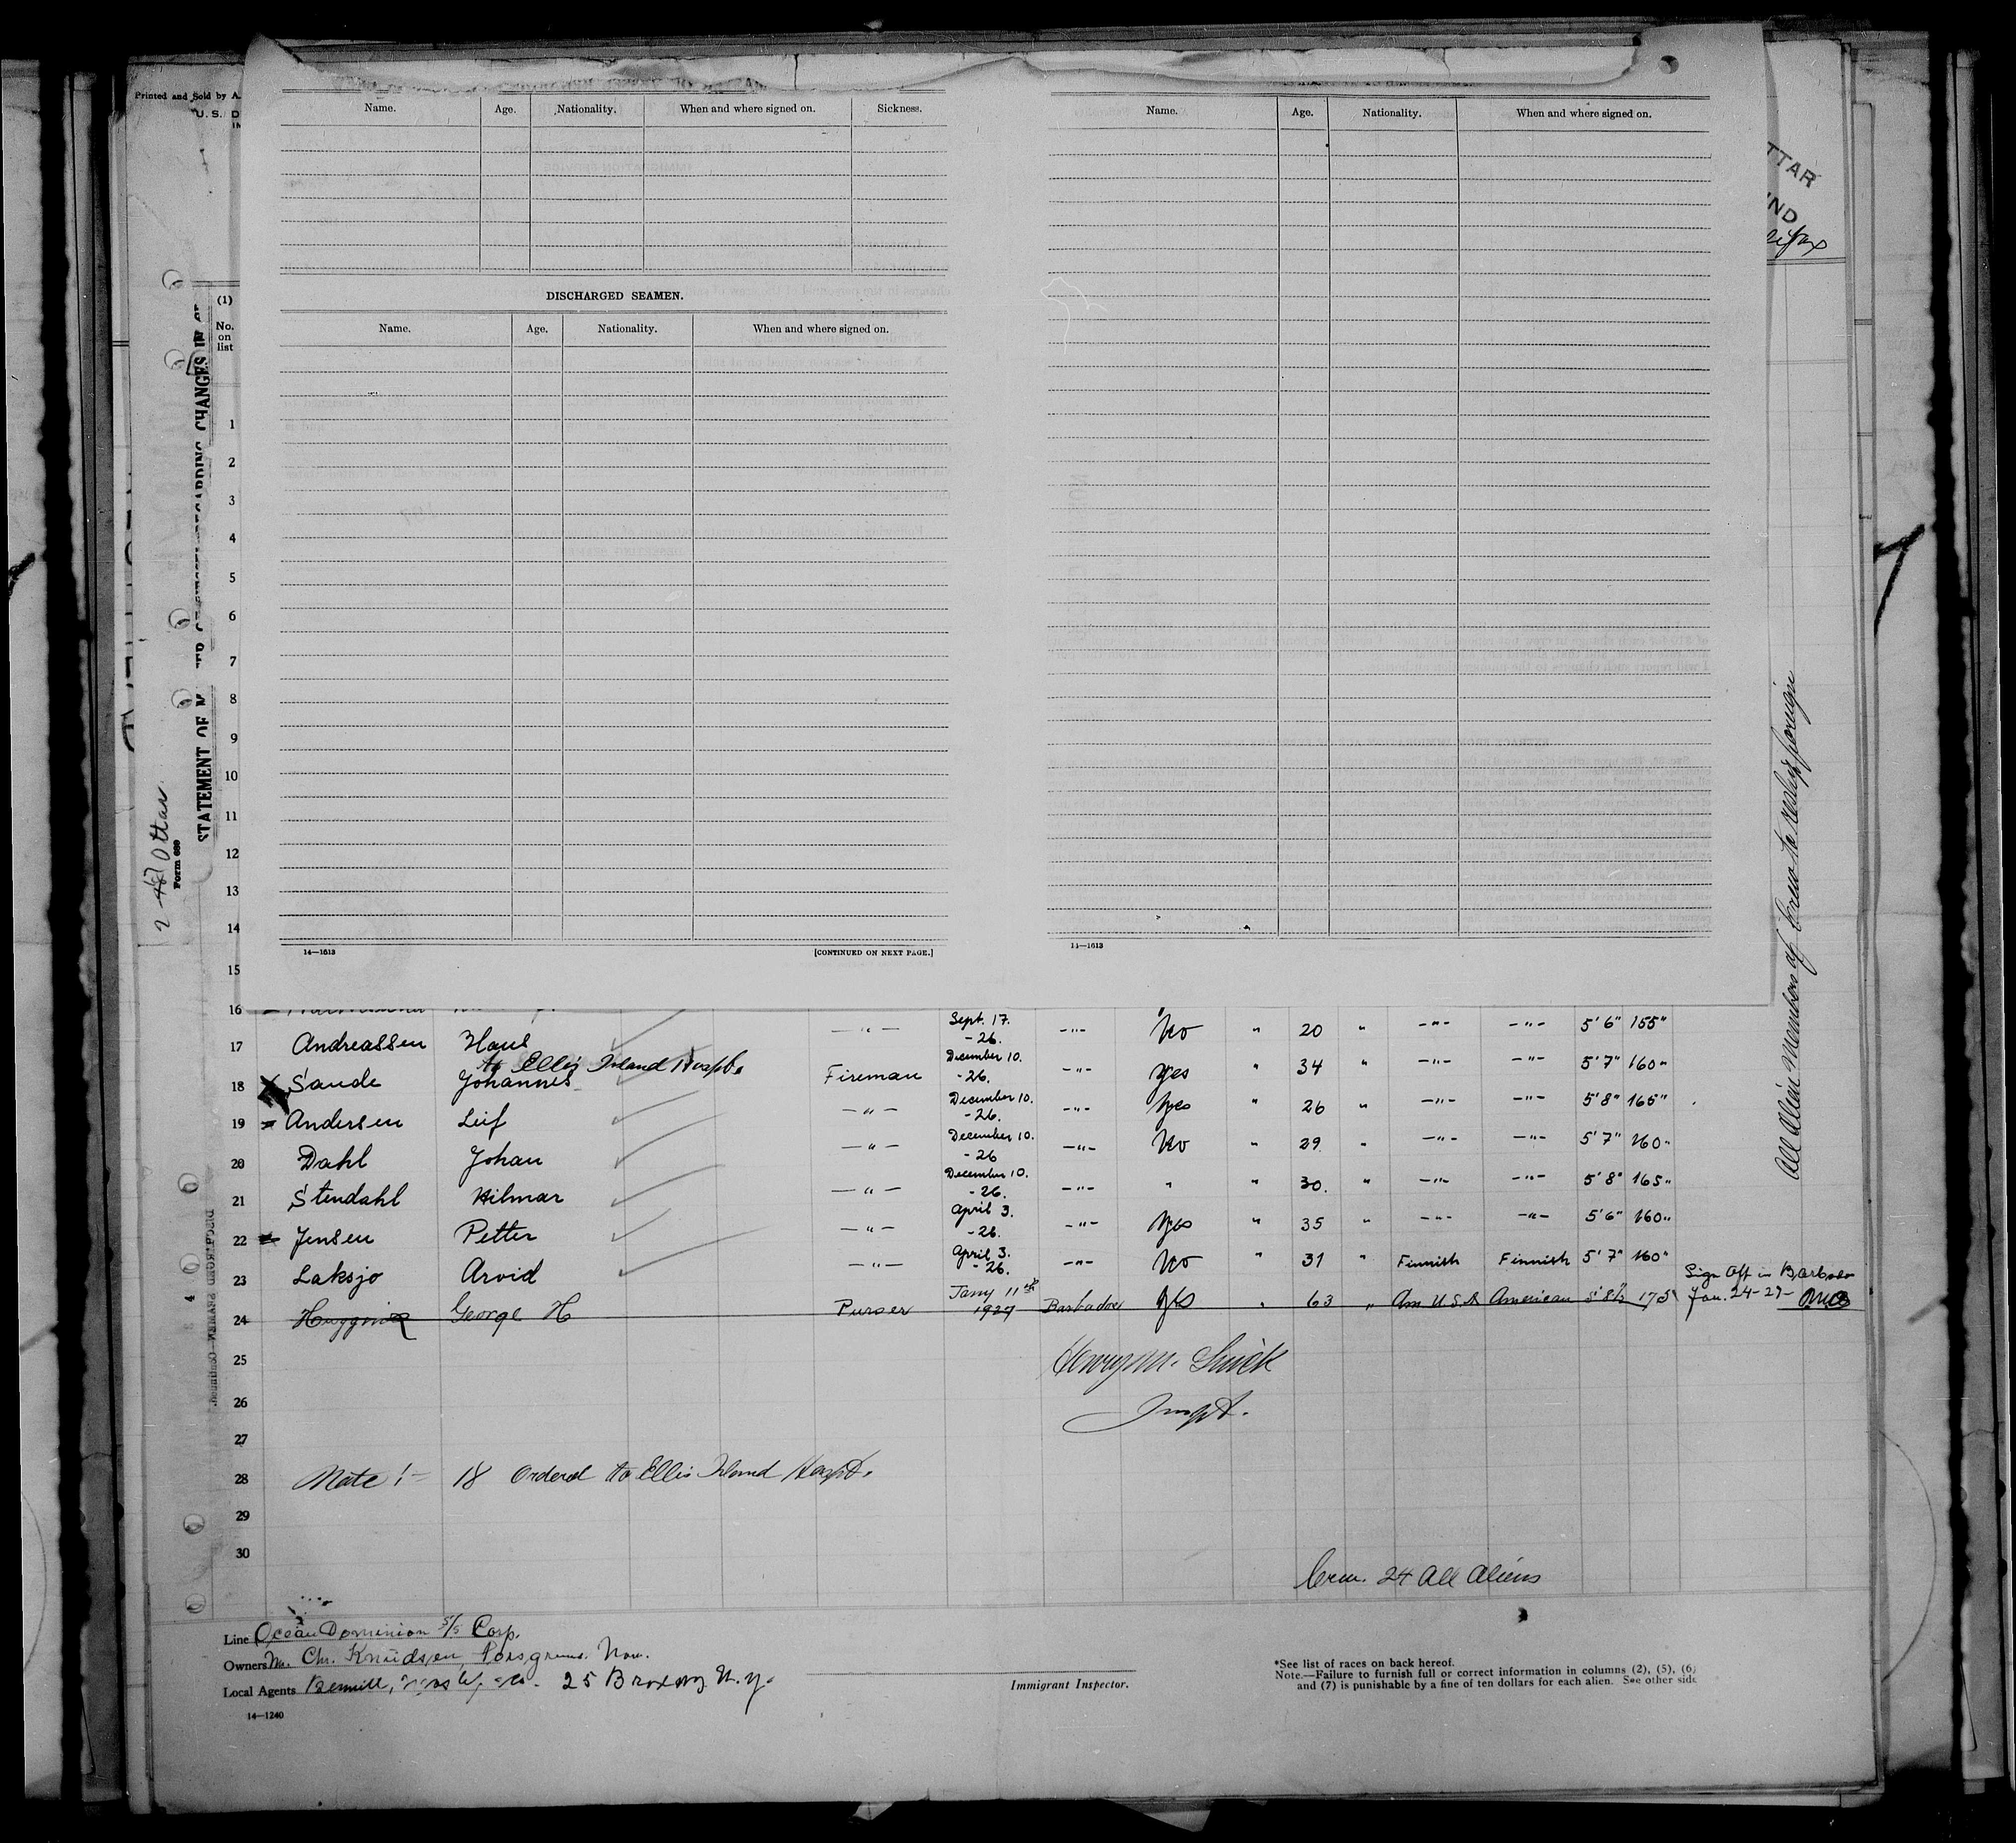 Printed and Sold by A.
U. S. D
Name. Age. Nationality. When and where signed on. Sickness.
DISCHARGED SEAMEN.
Name. Age. Nationality. When and where signed on.
14—1613 [CONTINUED ON NEXT PAGE.]
Name. Age. Nationality. When and where signed on.
14—1613
TTAR
IND
(1)
No. on list
STATEMENT OF M
REGARDING CHANGES IN
Ottar
Form 689
1
2
3
4
5
6
7
8
9
10
11
12
13
14
15
16
17 Andreassen Hans —"— Sept. 17. -26. —"— No " 20 " —"— —"— 5' 6" 155"
to Ellis Island Hospt.
18 X Sande Johannes Fireman December 10. -26. —"— yes " 34 " —"— —"— 5' 7" 160"
19 Andersen Leif —"— December 10. -26. —"— yes " 26 " —"— —"— 5' 8" 165"
20 Dahl Johan —"— December 10. -26 —"— No " 29 " —"— —"— 5' 7" 160"
21 Stendahl Hilmar —"— December 10. -26. —"— " " 30. " —"— —"— 5' 8" 165"
22 Jensen Petter —"— April 3. -26. —"— Yes " 35 " —"— —"— 5' 6" 160"
23 Laksjo Arvid —"— April 3. -26. —"— No " 31 " Finnish Finnish 5' 7" 160"
24 Huggins George H Purser Jany 11th 1927 Barbados yes " 63 " Am U.S.A American 5' 8½" 175 Sign Off in Barbados Jan. 24-27-
25
26
27
28
29
30
Henry M.
Inspt.
Note! - 18 Ordered to Ellis Island Hospt.
Crew. 24 All Aliens
All Alien Members of Crew to reship foreign
DISCHARGED SEAMEN—Continued.
Line Ocean Dominion S/S Corp.
Owners Chr. Knudsen, Porsgrund. Nor.
Local Agents 25 Broadway N.Y.
14—1240
Immigrant Inspector.
*See list of races on back hereof.
Note.—Failure to furnish full or correct information in columns (2), (5), (6)
and (7) is punishable by a fine of ten dollars for each alien. See other side